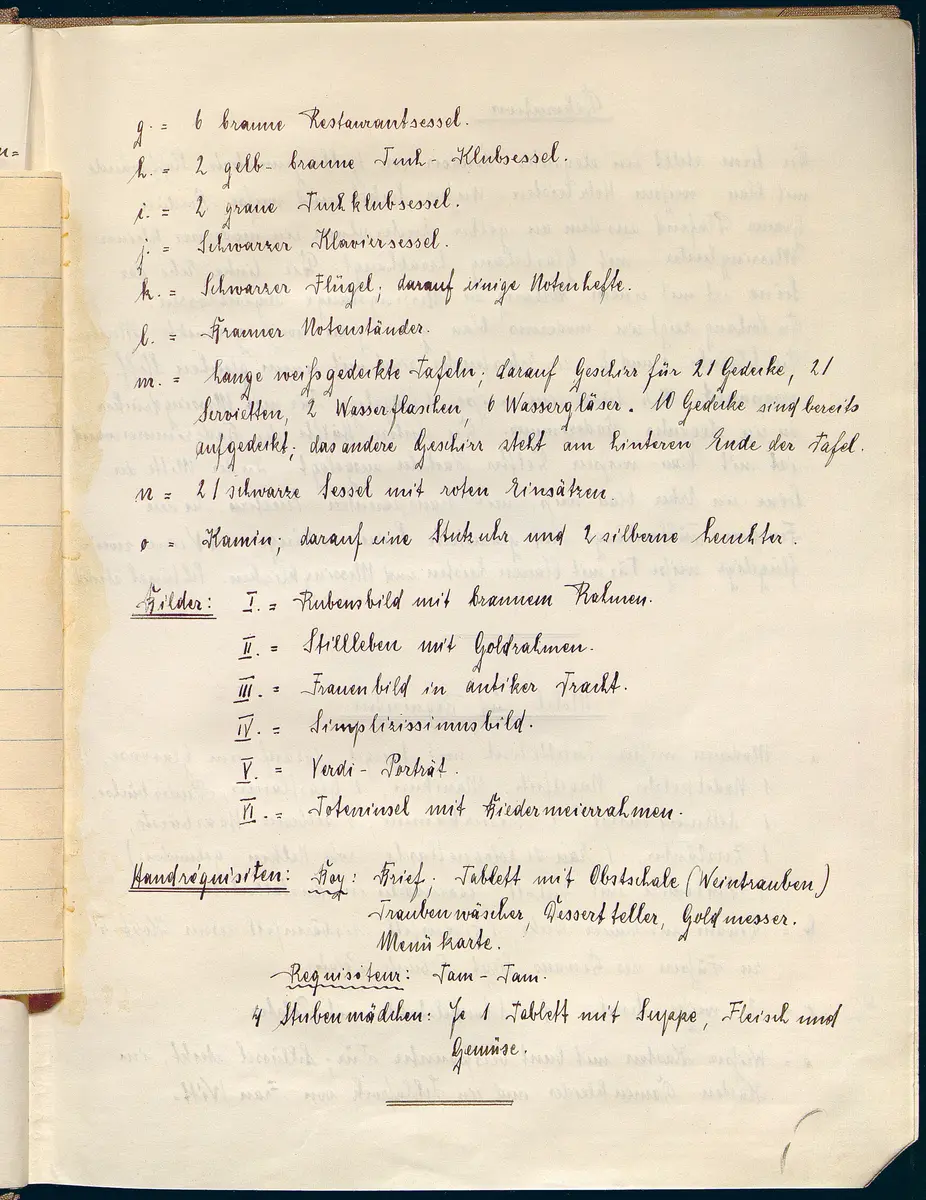 g. = 6 braune Restaurantsessel.
h. = 2 gelb-braune Tuch-Klubsessel.
i. = 2 graue Tuchklubsessel.
j. = Schwarzer Klaviersessel.
k. = Schwarzer Flügel; darauf einige Notenhefte.
l. = Brauner Notenständer.
m. = Lange weißgedeckte Tafeln; darauf Geschirr für 21 Gedecke, 21
Servietten, 2 Wasserflaschen, 6 Wassergläser. 10 Gedecke sind bereits
aufgedeckt; das andere Geschirr steht am hinteren Ende der Tafel.
n = 21 schwarze Sessel mit roten Einsätzen.
o = Kamin; darauf eine Stutzuhr und 2 silberne Leuchter.
Bilder: I. = Rubensbild mit braunem Rahmen.
II. = Stillleben mit Goldrahmen.
III. = Frauenbild in antiker Tracht.
IV. = Simplizissimusbild.
V. = Verdi-Porträt.
VI. = Toteninsel mit Biedermeierrahmen.
Handrequisiten: Boy: Brief; Tablett mit Obstschale (Weintrauben)
Traubenwäscher, Dessertteller, Goldmesser.
Menükarte.
Requisiteur: Tam-Tam.
4 Stubenmädchen: Je 1 Tablett mit Suppe, Fleisch und
Gemüse.